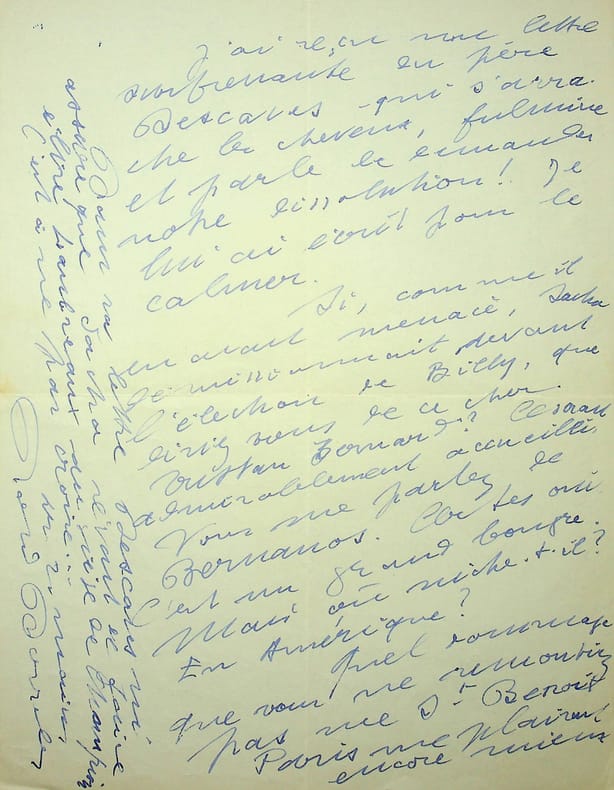 J'ai reçu une lettre
surprenante du père
Descaves qui s'arra-
che les cheveux, fulmine
et parle de demander
notre dissolution! Je
lui ai écrit pour le
calmer.
Si, comme il
en avait menacé, Sacha
démissionnait devant
l'élection de Billy, que
diriez vous de ce cher
Tristan Bernard? Ce serait
admirablement accueilli.
Vous me parlez de
Bernanos. Certes oui
c'est un grand bougre.
Mais où niche-t-il?
En Amérique?
Quel dommage
que vous ne remontiez
pas me St Benoît
Paris me plairait
encore mieux
Dans sa lettre Descaves m'
assure que Sacha rêvait de
élire au siège de Champion
C'est à ne pas croire...